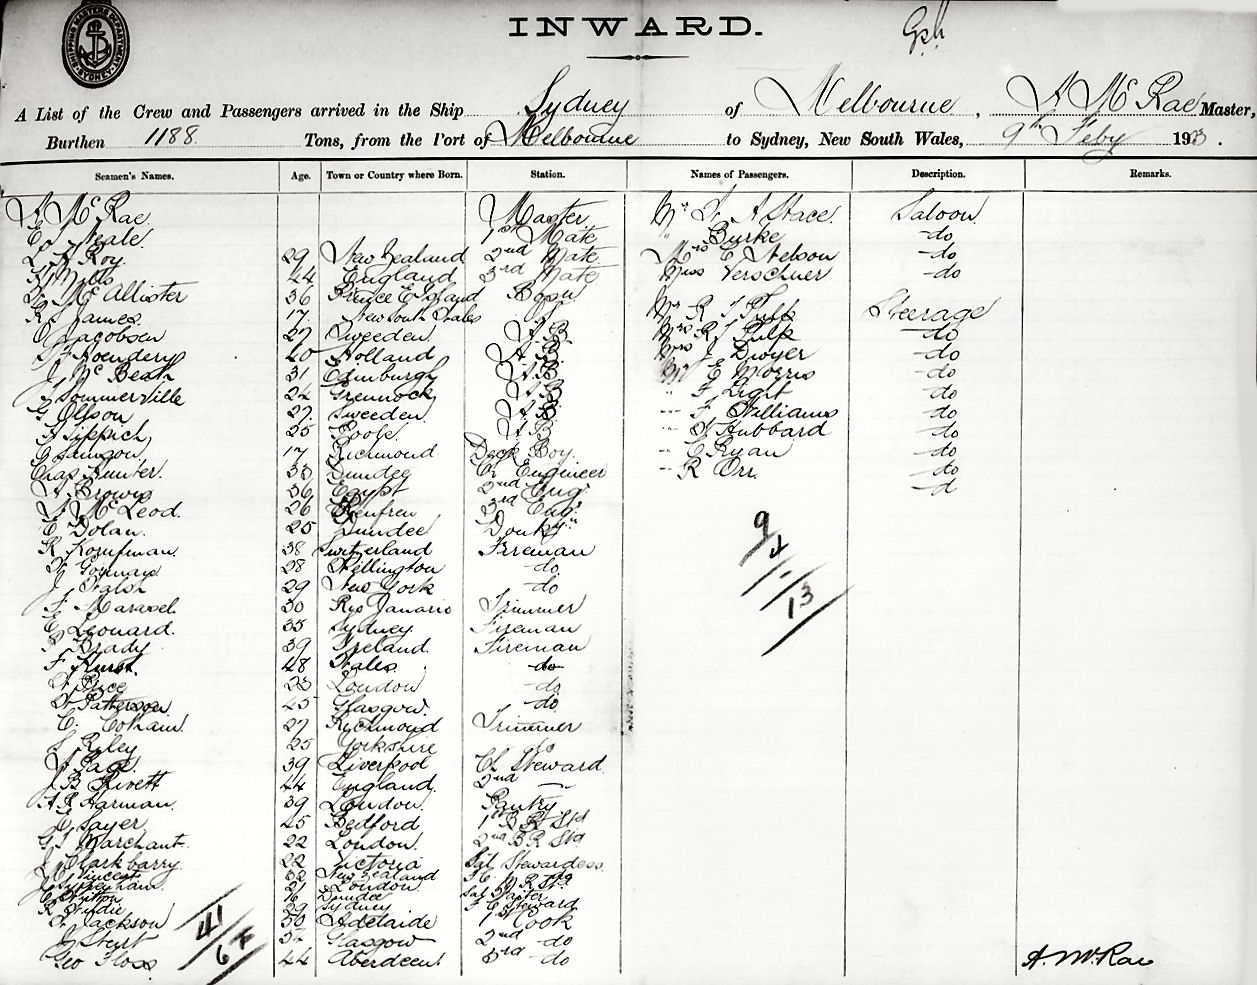 SHIPPING MASTERS DEPARTMENT SYDNEY
INWARD.
A List of the Crew and Passengers arrived in the Ship Sydney of Melbourne, A McRae Master,
Burthen 1188 Tons, from the Port of Melbourne to Sydney, New South Wales, 9th Feby 193.
Seamen's Names. Age. Town or Country where Born. Station. Names of Passengers. Description. Remarks.
A McRae Master Mr A Stace. Saloon
Neale. 1st Mate " Burke -do
Roy. 29 New Zealand 2nd Mate Mrs E Nelson -do
Mills 44 England 3rd Mate Miss Verschuer -do
McAllister 36 Prince E Island Bosn
R James. 17. New South Wales Mr R J Pulk Steerage
Jacobsen 27 Sweeden A.B. Mrs R J Pulk -do
40 Holland A.B. Mrs J Dwyer -do
J McBeath 31 Edinburgh A.B. Mr E Morris -do
J Sommerville 24 Greenock A.B. " F Light -do
G Olsson 27. Sweeden. A.B. " F Williams -do
A Tippich 25 Poole. A.B. " Hubbard -do
17 Richmond Deck Boy. " C Ryan -do
Chas Hunter. 33 Dundee Ch Engineer " R Orr. -do
A Brown 36 Egypt 2nd Eng. -d
McLeod. 26 Renfrew 3rd Eng.
E Dolan. 25 Dundee Donkyn
R Kornfman 38 Switzerland Fireman
28 Wellington -do
J Walsh 29 New York -do
F Maraseh 30 Rio Janario Trimmer
E Leonard. 35 Sydney. Fireman
Brady 39 Ireland. Fireman
F Hurst. 48 Wales. -do
Price 23 London -do
W Patterson 25 Glasgow. -do
C. Cotham. 27 Richmond Trimmer
J Riley 25 Yorkshire do
Page. 39 Liverpool Ch Steward.
J B Rivett 44 England. 2nd
A R Harman. 39 London. Pantry
E Sayer 25 Bedford 1st B R Std
G J Marchant. 22 London. 2nd B R Std
J Clarkbarry. 22 Victoria Stewardess
Vincent 32 New Zealand
Syrrenham. 21 London
16 Dundee
R Hindie 29 Sydney F C Steward
Jackson 50 Adelaide 1st Cook
J Stewt Glasgow 2nd do
Geo Floss 44 Aberdeen 3rd do
9
4
13
41
6
A. McRae